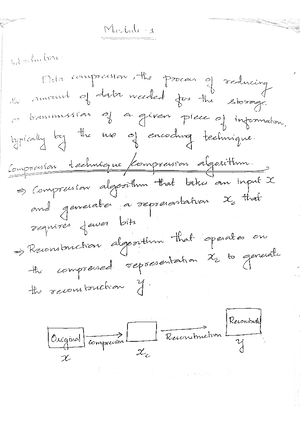 Module - 1
Introduction
Data compression, the process of reducing
the amount of data needed for the storage
or transmission of a given piece of information,
typically by the use of encoding technique.
Compression technique/compression algorithm.
⇒ Compression algorithm that takes an input X
and generates a representation Xc that
requires fewer bits
⇒ Reconstruction algorithm that operates on
the compressed representation Xc to generate
the reconstruction y.
Original Compression Reconstruction Reconstruct
X Xc y